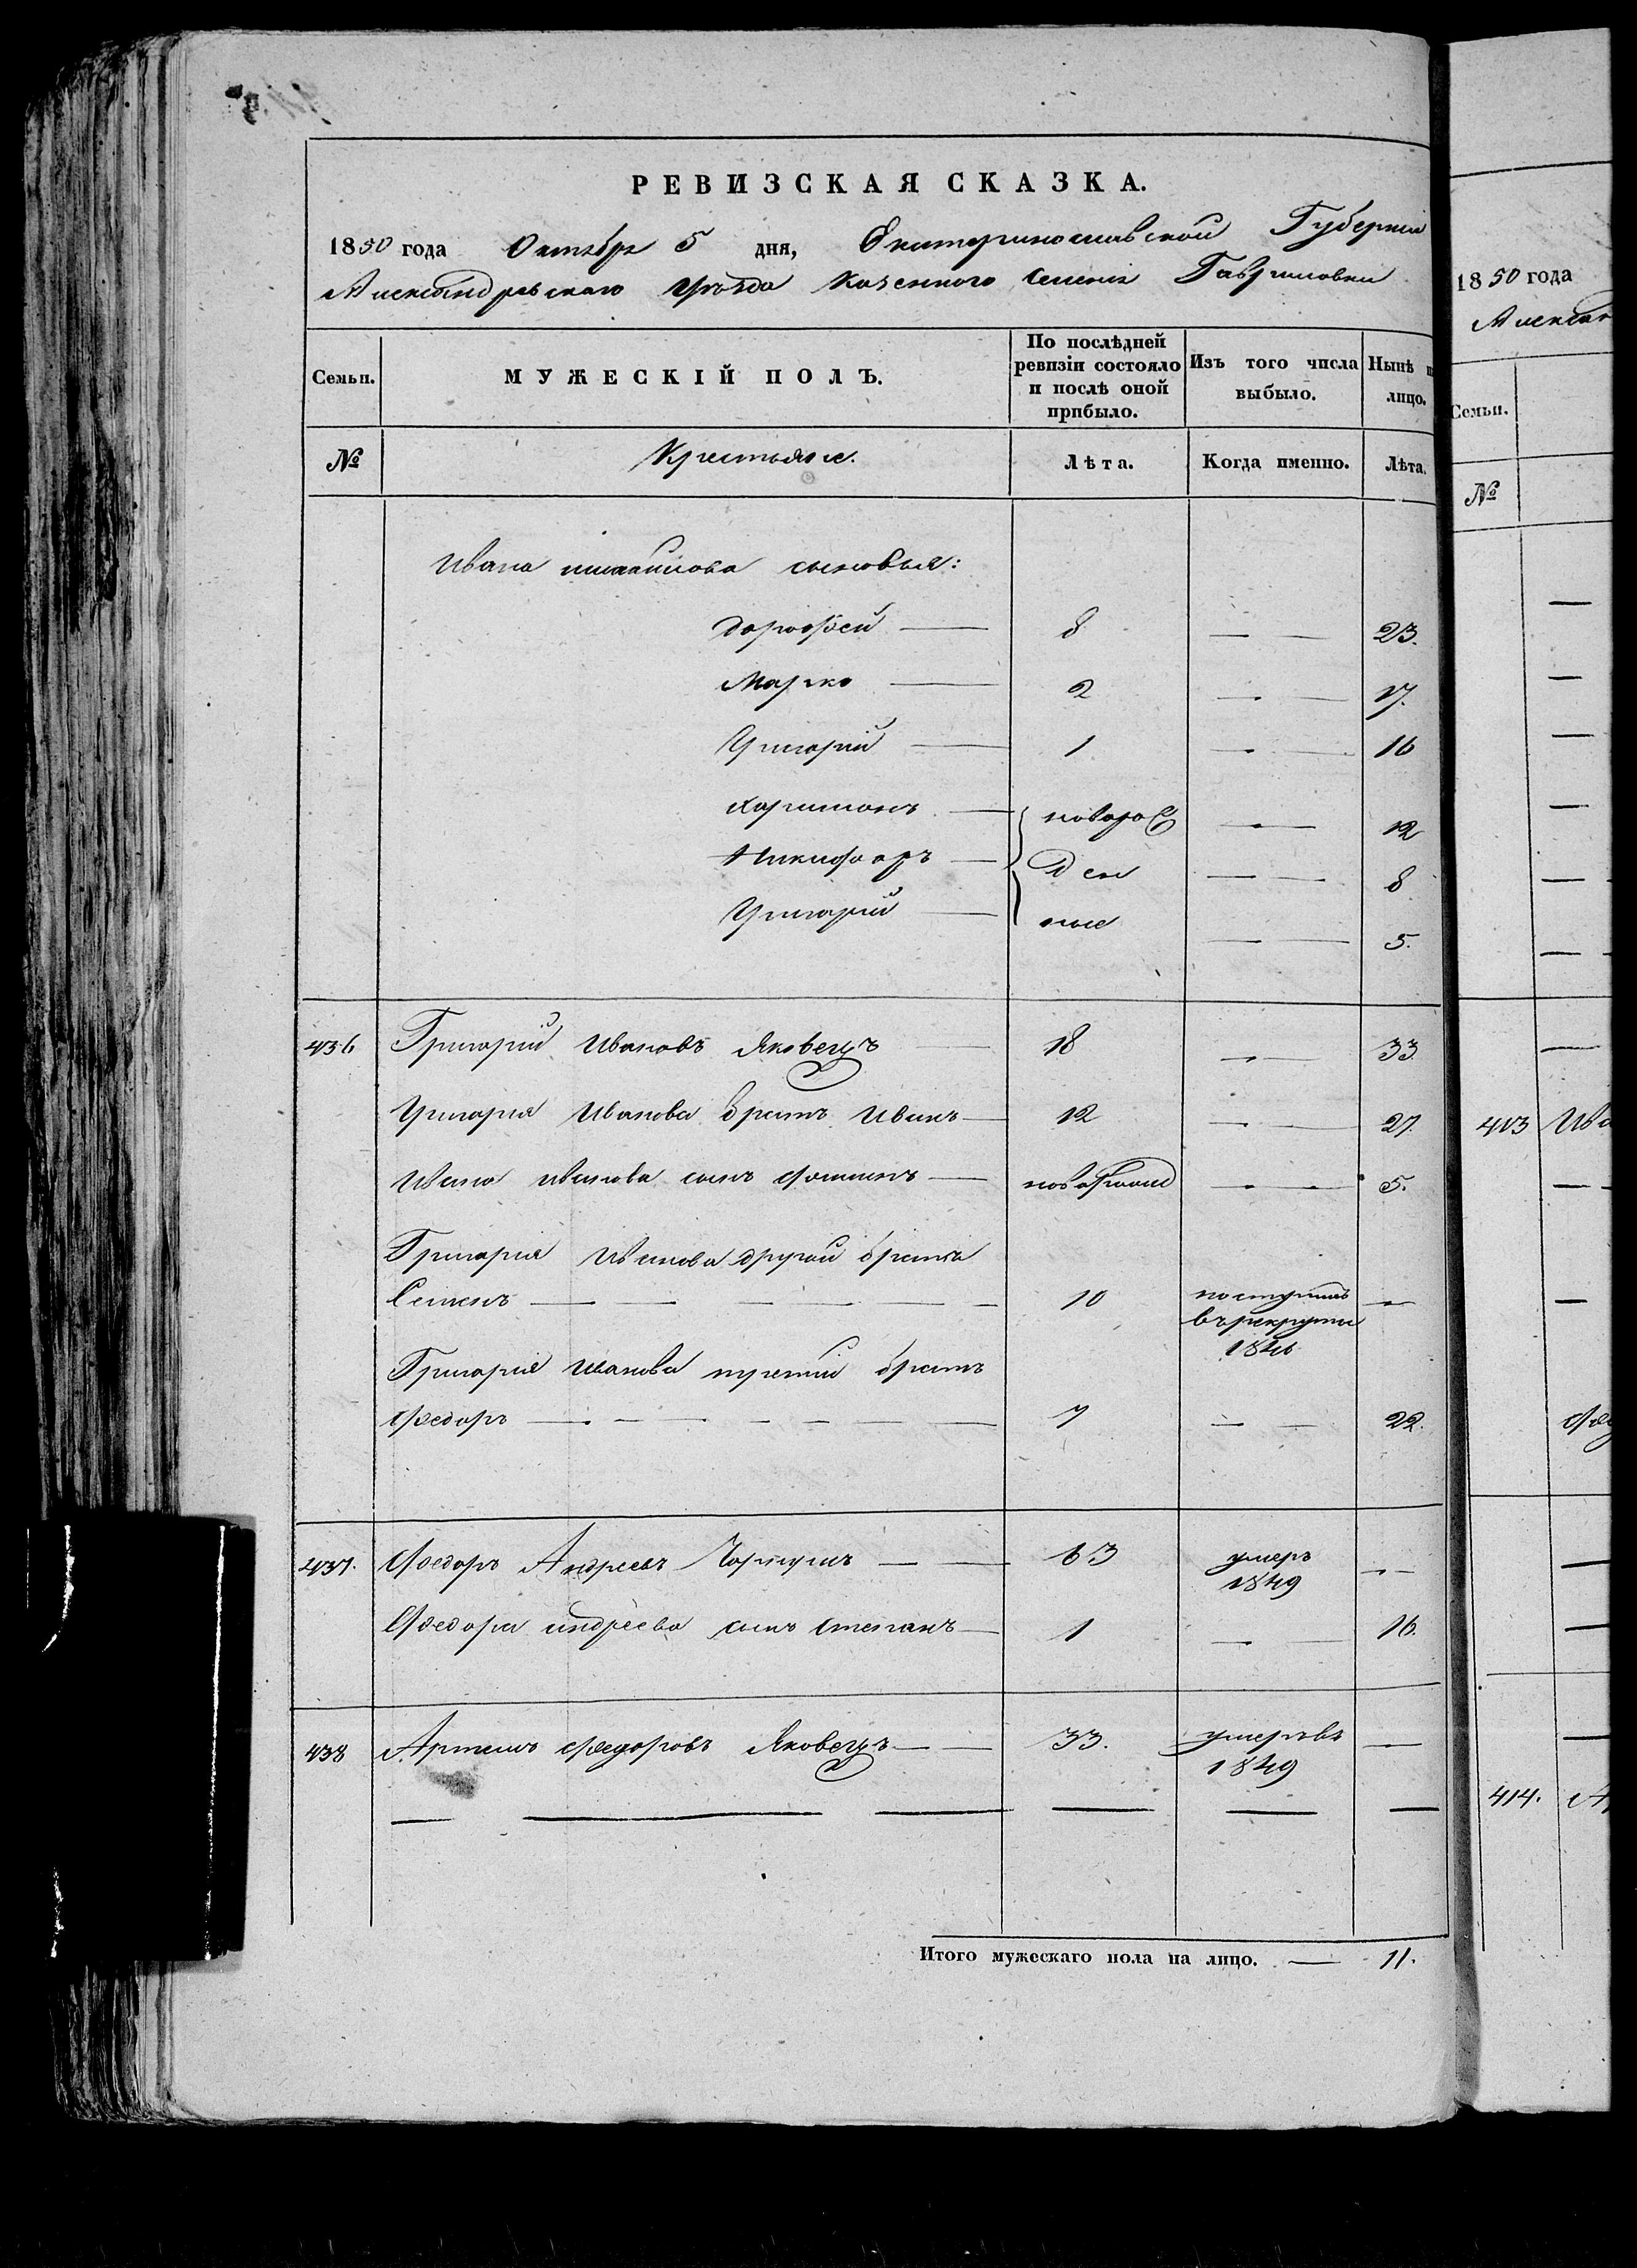 РЕВИЗСКАЯ СКАЗКА.
1850 года Октября 5 дня, Екатеринославской Губернiи
Александровскаго Уѣзда Казенного Селенiя Гавриловки
Семьи. МУЖЕСКIЙ ПОЛЪ. По послѣдней ревизiи состояло и послѣ оной прибыло. Изъ того числа выбыло. Нынѣ лицо.
№ Крестьяне. Лѣта. Когда именно. Лѣта.
Ивана сыновья:
Дорофей — 8 — 23.
Марко — 2 — 17.
Григорiй — 1 — 16
Харитонъ — новорож — 12
Никифоръ — ден — 8
Григорiй — ные — 5.
436 Григорiй Ивановъ Яковецъ — 18 — 33.
Григорiя Иванова братъ Иванъ — 12 — 27.
Ивана Иванова сынъ — 5.
Григорiя Иванова другой братъ
Семенъ — 10 поступилъ въ рекруты 1846 —
Григорiя Иванова третiй братъ
Федоръ — 7 — 22.
437. Федоръ Андреевъ — 63 умеръ 1849 —
Федора Андреева сынъ Степанъ — 1 — 16.
438 Артемъ Федоровъ Яковецъ — 33. умеръ въ 1849 —
Итого мужескаго пола на лицо. — 11.
1850 года
Семьи.
№
413
414.